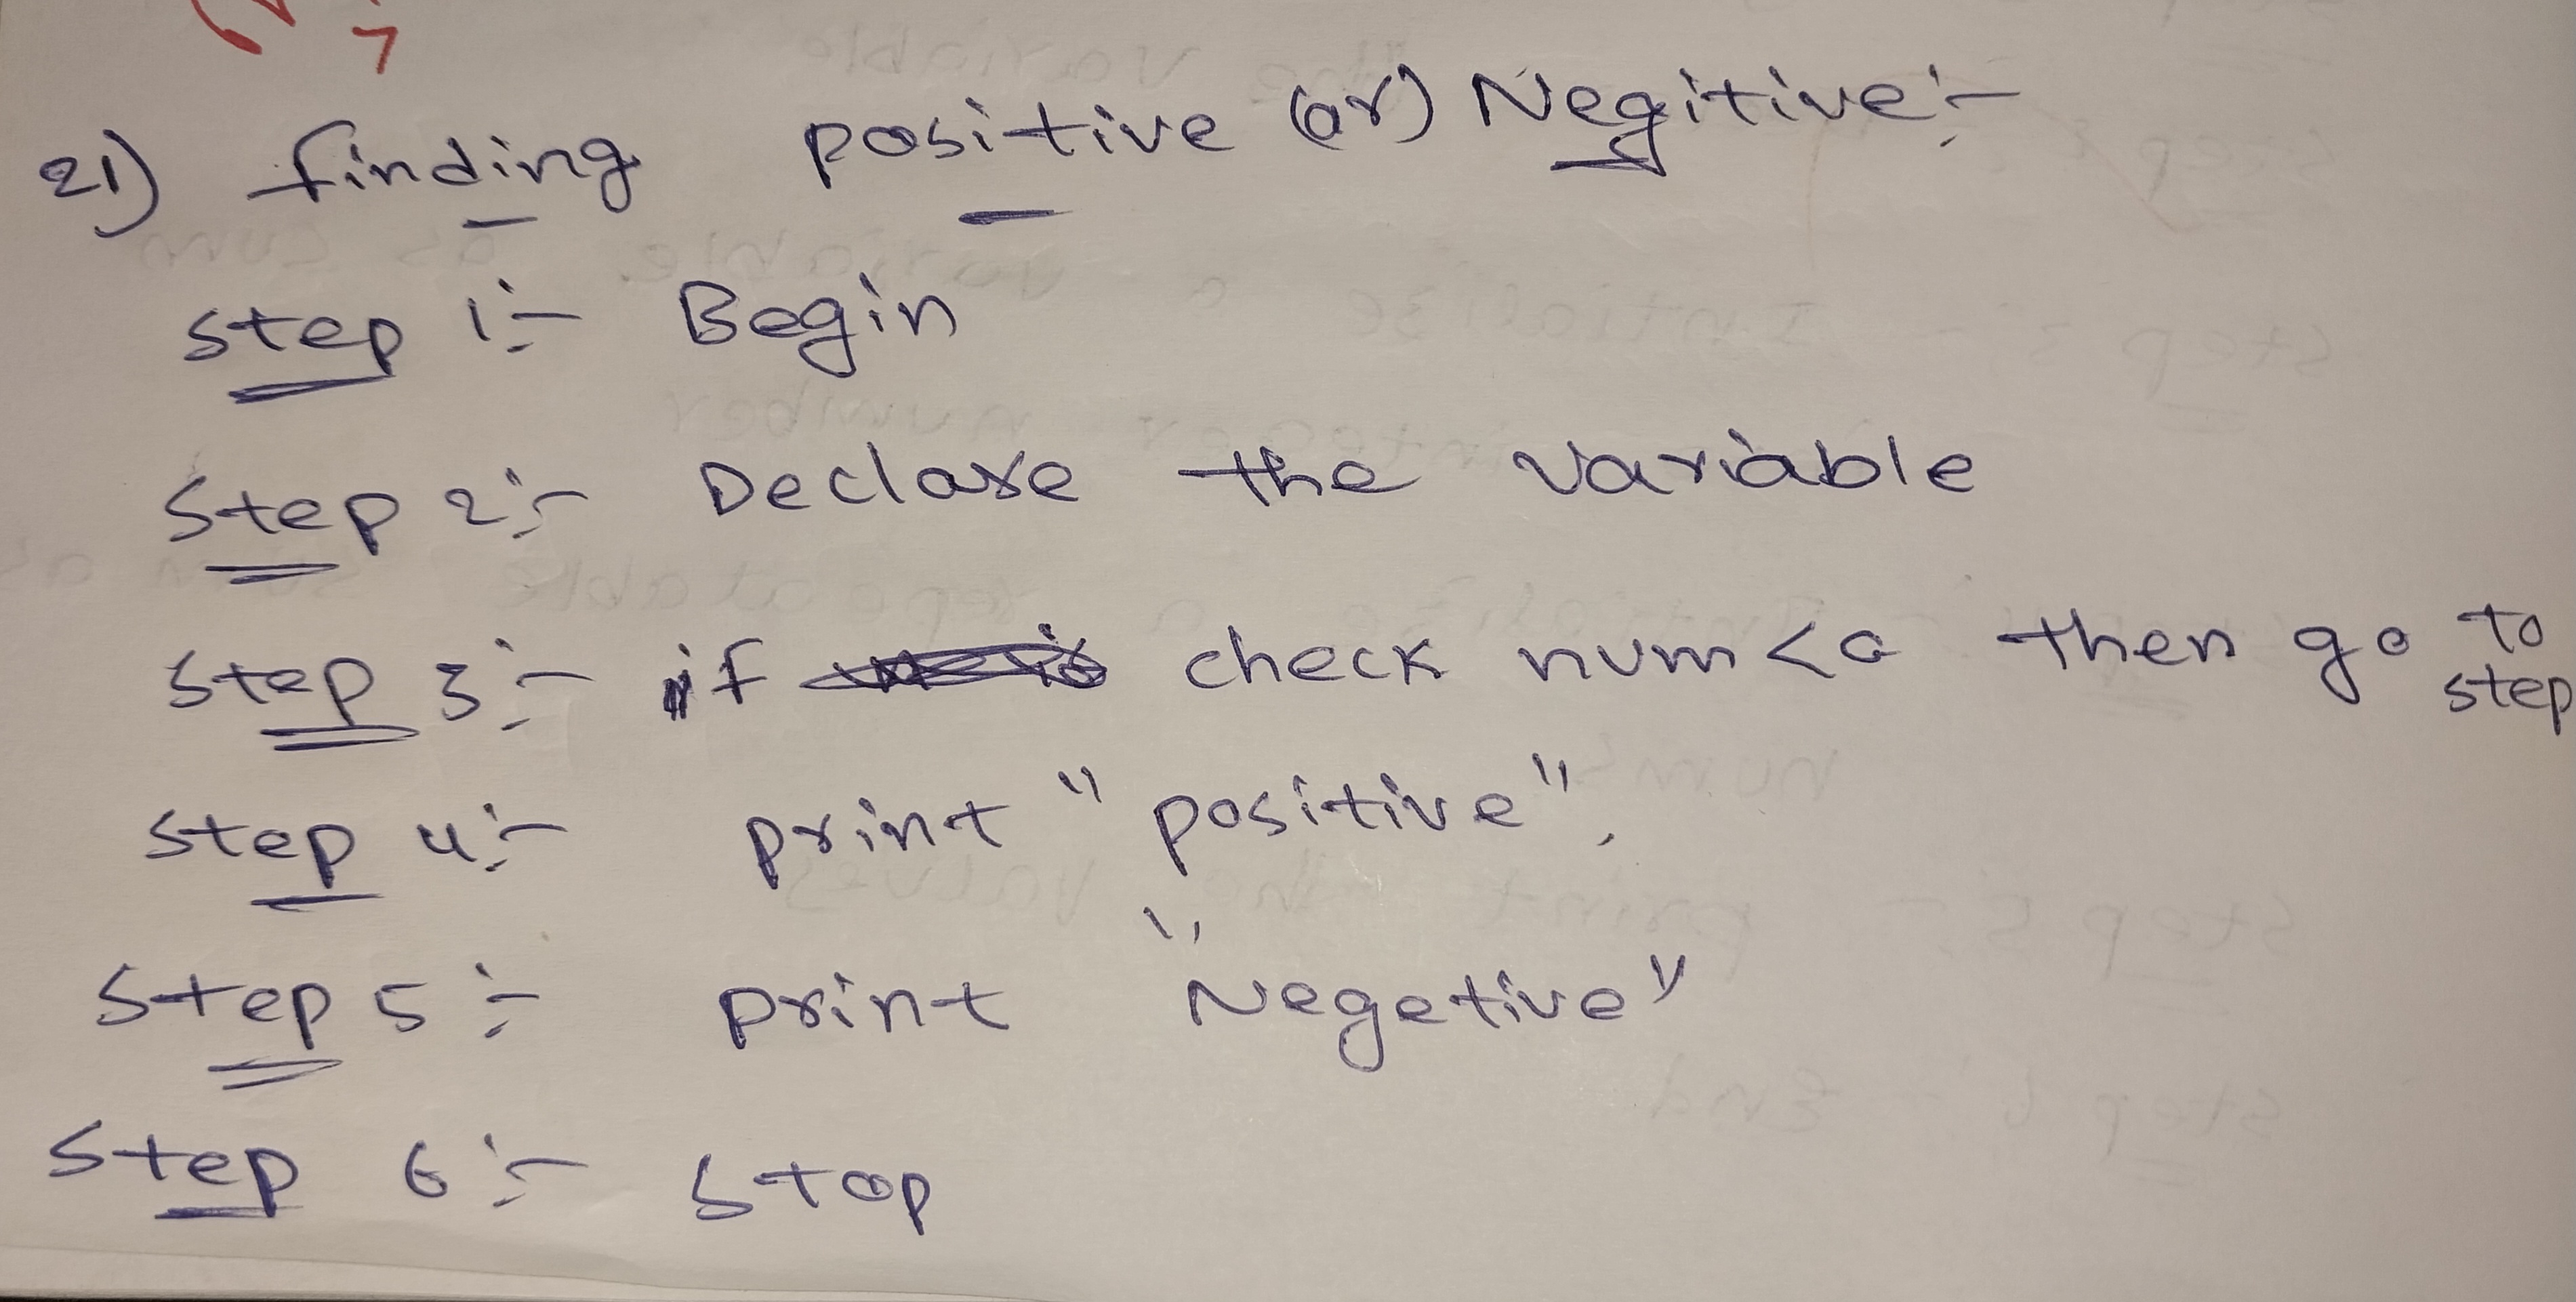 21) finding positive (or) Negitive:-
step 1:- Begin
step 2:- Declare the variable
step 3:- if check num <0 then go to
step
step 4:- print "positive",
step 5:- print "Negetive"
step 6:- stop